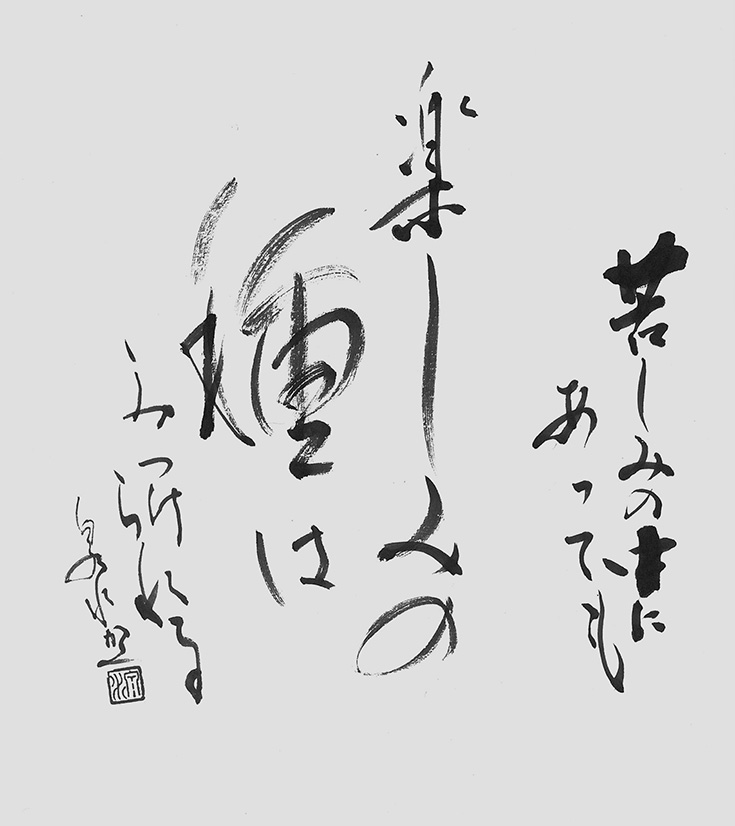 苦しみの中に
あっても
楽しみの
種は
みつけ